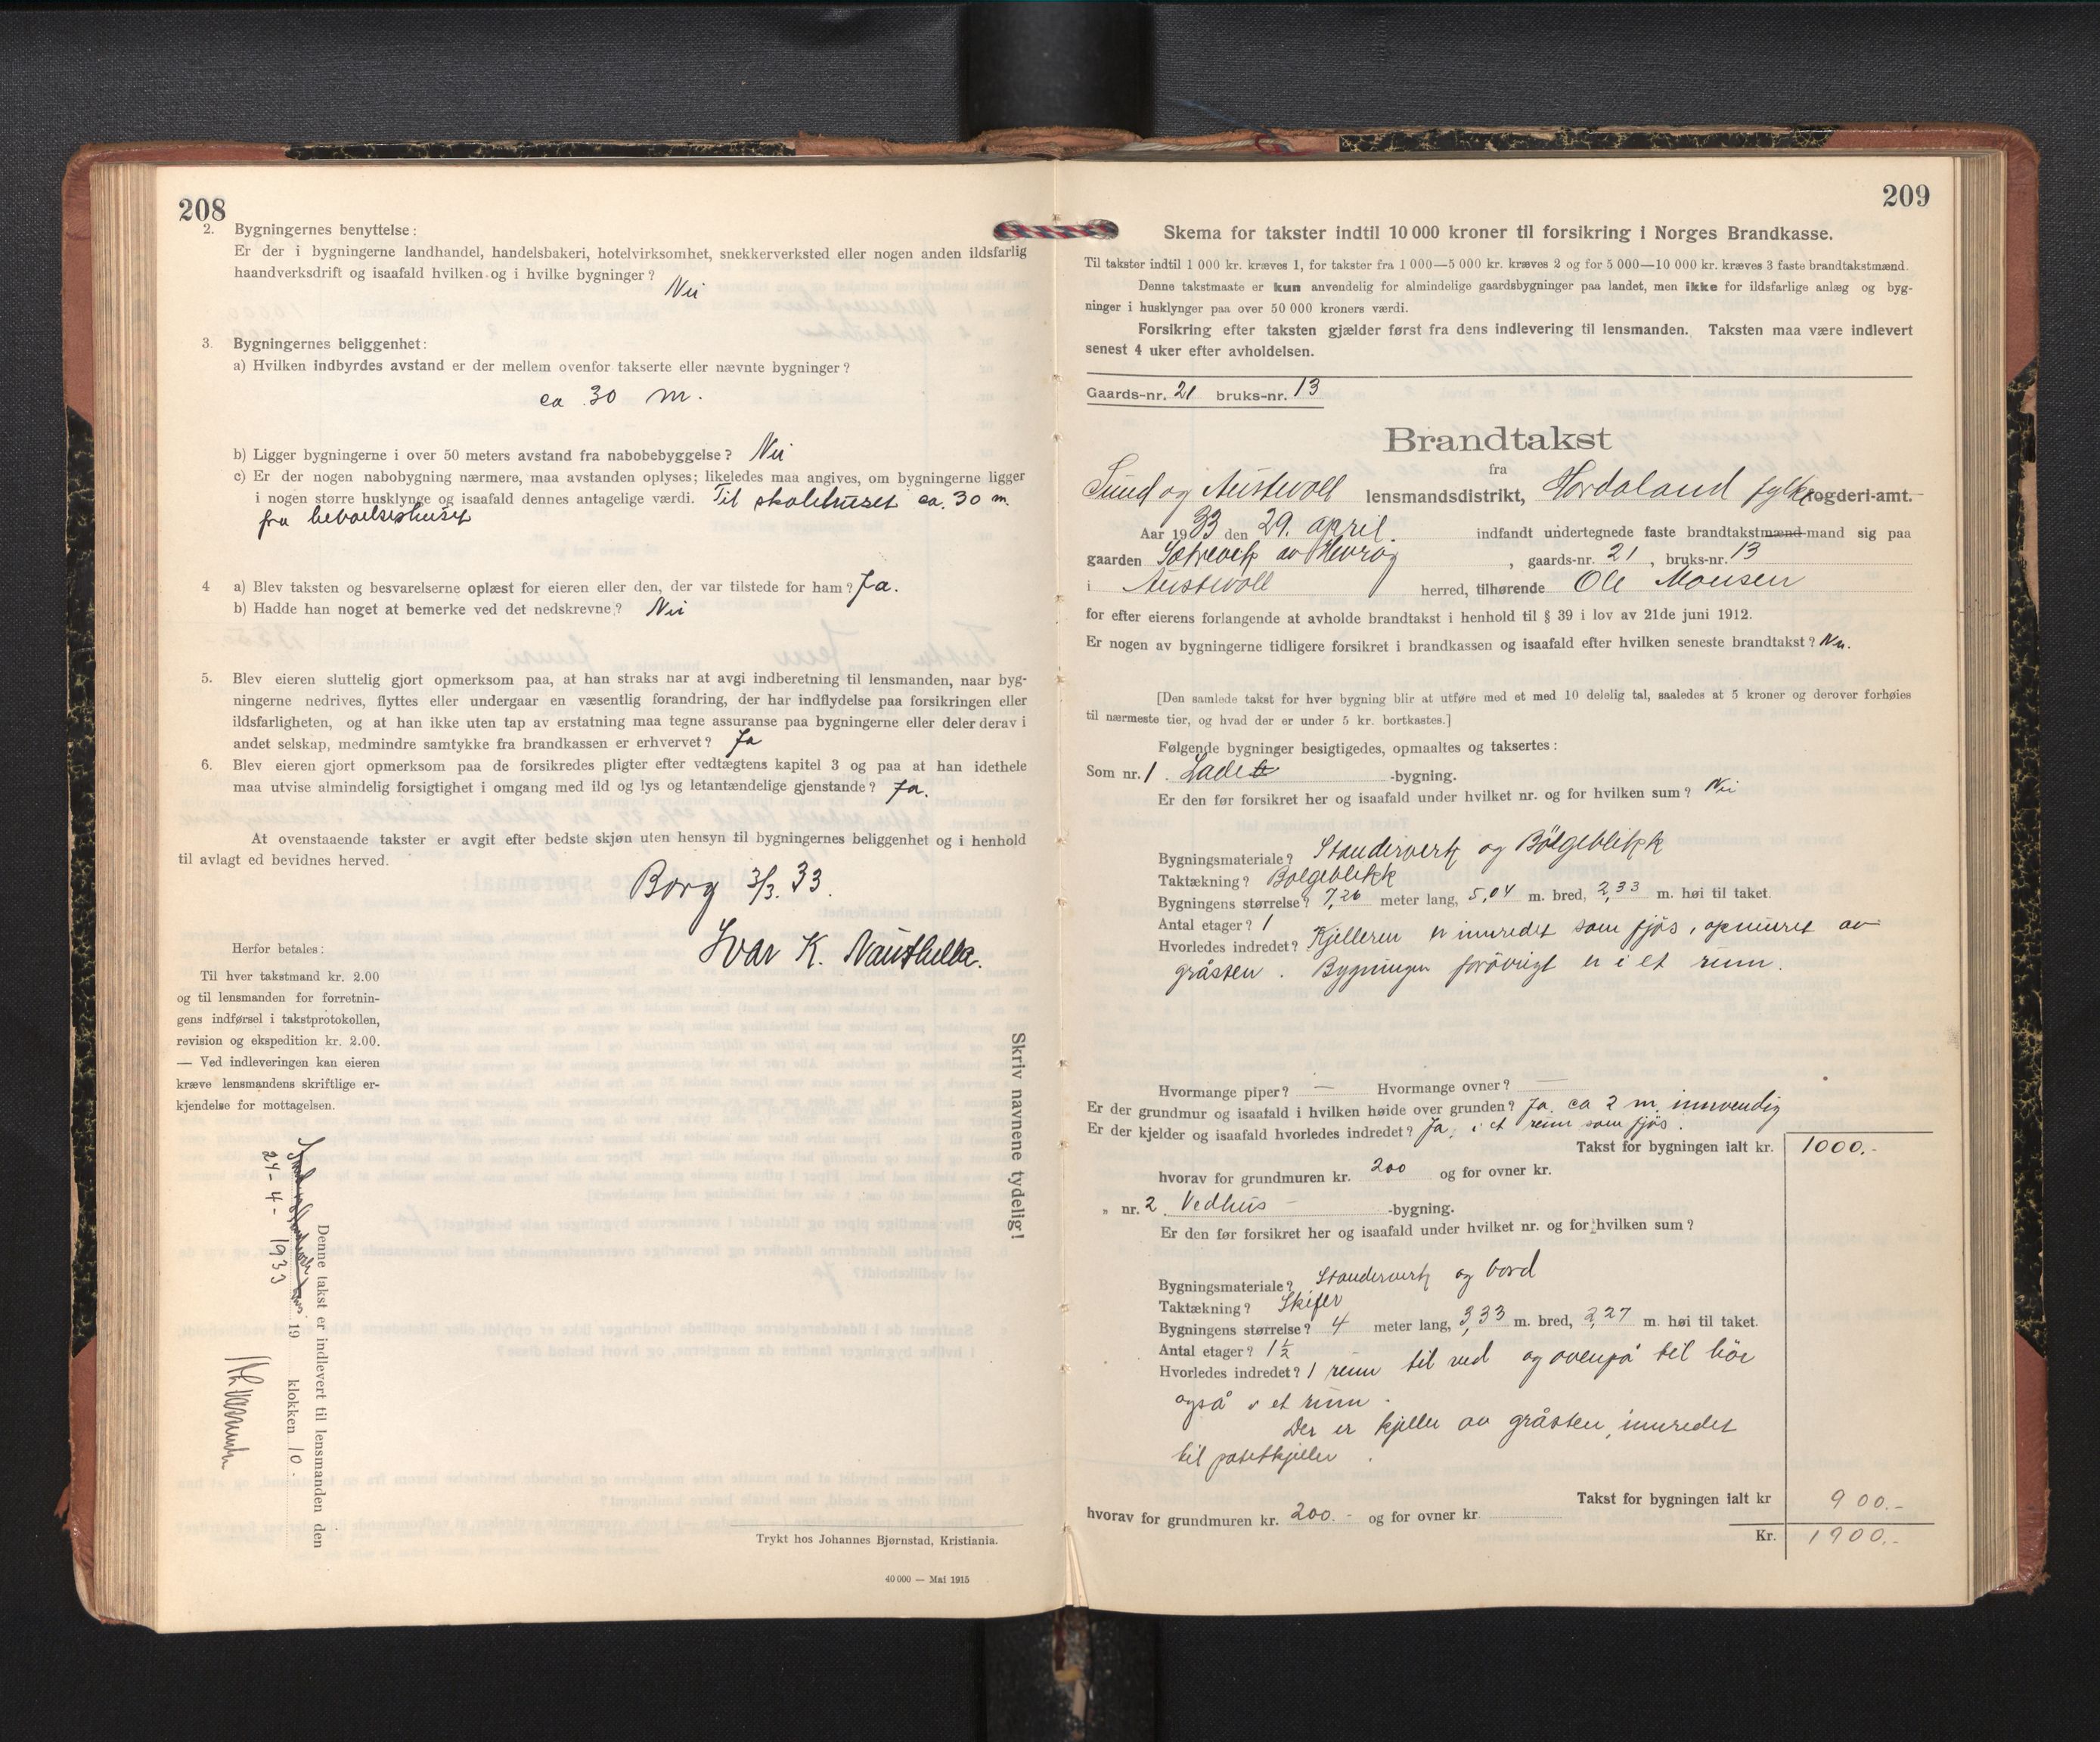 208
2. Bygningernes benyttelse:
Er der i bygningerne landhandel, handelsbakeri, hotelvirksomhet, snekkerverksted eller nogen anden ildsfarlig
haandverksdrift og isaafald hvilken og i hvilke bygninger?
Nei
3. Bygningernes beliggenhet:
a) Hvilken indbyrdes avstand er der mellem ovenfor takserte eller nævnte bygninger?
ca 30 m.
b) Ligger bygningerne i over 50 meters avstand fra nabobebyggelse? Nei
c) Er der nogen nabobygning nærmere, maa avstanden oplyses; likeledes maa angives, om bygningerne ligger
i nogen større husklynge og isaafald dennes antagelige værdi. Til skolehuset ca. 30 m.
fra
4 a) Blev taksten og besvarelserne oplæst for eieren eller den, der var tilstede for ham? Ja.
b) Hadde han noget at bemerke ved det nedskrevne? Nei
5. Blev eieren sluttelig gjort opmerksom paa, at han straks har at avgi indberetning til lensmanden, naar byg-
ningerne nedrives, flyttes eller undergaar en væsentlig forandring, der har indflydelse paa forsikringen eller
ildsfarligheten, og at han ikke uten tap av erstatning maa tegne assuranse paa bygningerne eller deler derav i
andet selskap, medmindre samtykke fra brandkassen er erhvervet? Ja
6. Blev eieren gjort opmerksom paa de forsikredes pligter efter vedtægtens kapitel 3 og paa at han idethele
maa utvise almindelig forsigtighet i omgang med ild og lys og letantændelige gjenstande? Ja.
At ovenstaaende takster er avgit efter bedste skjøn uten hensyn til bygningernes beliggenhet og i henhold
til avlagt ed bevidnes herved.
Borg 3/3. 33.
Ivar K. Nausthella.
Herfor betales:
Til hver takstmand kr. 2.00
og til lensmanden for forretnin-
gens indførsel i takstprotokollen,
revision og ekspedition kr. 2.00.
— Ved indleveringen kan eieren
kræve lensmandens skriftlige er-
kjendelse for mottagelsen.
Skriv navnene tydelig!
Denne takst er indlevert til lensmanden den
19 klokken 10.
24-4-1933
Trykt hos Johannes Bjørnstad, Kristiania.
40 000 — Mai 1915
209
Skema for takster indtil 10 000 kroner til forsikring i Norges Brandkasse.
Til takster indtil 1 000 kr. kræves 1, for takster fra 1 000—5 000 kr. kræves 2 og for 5 000—10 000 kr. kræves 3 faste brandtakstmænd.
Denne takstmaate er kun anvendelig for almindelige gaardsbygninger paa landet, men ikke for ildsfarlige anlæg og byg-
ninger i husklynger paa over 50 000 kroners værdi.
Forsikring efter taksten gjælder først fra dens indlevering til lensmanden. Taksten maa være indlevert
senest 4 uker efter avholdelsen.
Gaards-nr. 21 bruks-nr. 13
Brandtakst
fra
Sund og Austevoll lensmandsdistrikt, Hordaland fylke fogderi-amt.
Aar 1933 den 29. april. indfandt undertegnede faste brandtakstmænd-mand sig paa
gaarden av , gaards-nr. 21, bruks-nr. 13
i Austevoll herred, tilhørende Ole Monsen
for efter eierens forlangende at avholde brandtakst i henhold til § 39 i lov av 21de juni 1912.
Er nogen av bygningerne tidligere forsikret i brandkassen og isaafald efter hvilken seneste brandtakst? Nei.
[Den samlede takst for hver bygning blir at utføre med et med 10 delelig tal, saaledes at 5 kroner og derover forhøies
til nærmeste tier, og hvad der er under 5 kr. bortkastes.]
Følgende bygninger besigtigedes, opmaaltes og taksertes:
Som nr. 1. Lade -bygning.
Er den før forsikret her og isaafald under hvilket nr. og for hvilken sum? Nei
Bygningsmateriale? Standerverk og Bölgeblikk
Taktækning? Bølgeblikk
Bygningens størrelse? 7,26 meter lang, 5,04 m. bred, 2,33 m. høi til taket.
Antal etager? 1
Hvorledes indredet? Kjelleren er innredet som fjös, opmuret av
gråsten. Bygningen forövrigt er i et rum.
Hvormange piper? — Hvormange ovner? —
Er der grundmur og isaafald i hvilken høide over grunden? Ja. ca 2 m. innvendig
Er der kjelder og isaafald hvorledes indredet? Ja, i et rum som fjös.
Takst for bygningen ialt kr. 1000.-
hvorav for grundmuren kr. 200 og for ovner kr.
„ nr. 2. Vedhus -bygning.
Er den før forsikret her og isaafald under hvilket nr. og for hvilken sum?
Bygningsmateriale? Standerverk og bord
Taktækning? Skifer
Bygningens størrelse? 4 meter lang, 3,33 m. bred, 2,27 m. høi til taket.
Antal etager? 1 1/2
Hvorledes indredet? 1 rum til ved og ovenpå til höi
også i et rum.
Der er kjeller av gråsten, innredet
til potetkjeller.
Takst for bygningen ialt kr 900.-
hvorav for grundmuren kr. 200.- og for ovner kr.
Kr. 1900.-